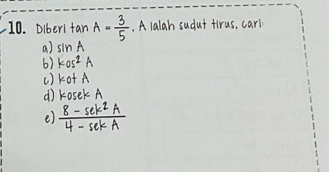 10. Diberi tan A = 3/5, A ialah sudut tirus, cari:
a) sin A
b) kos² A
c) kot A
d) kosek A
e) (8 - sek² A)/(4 - sek A)